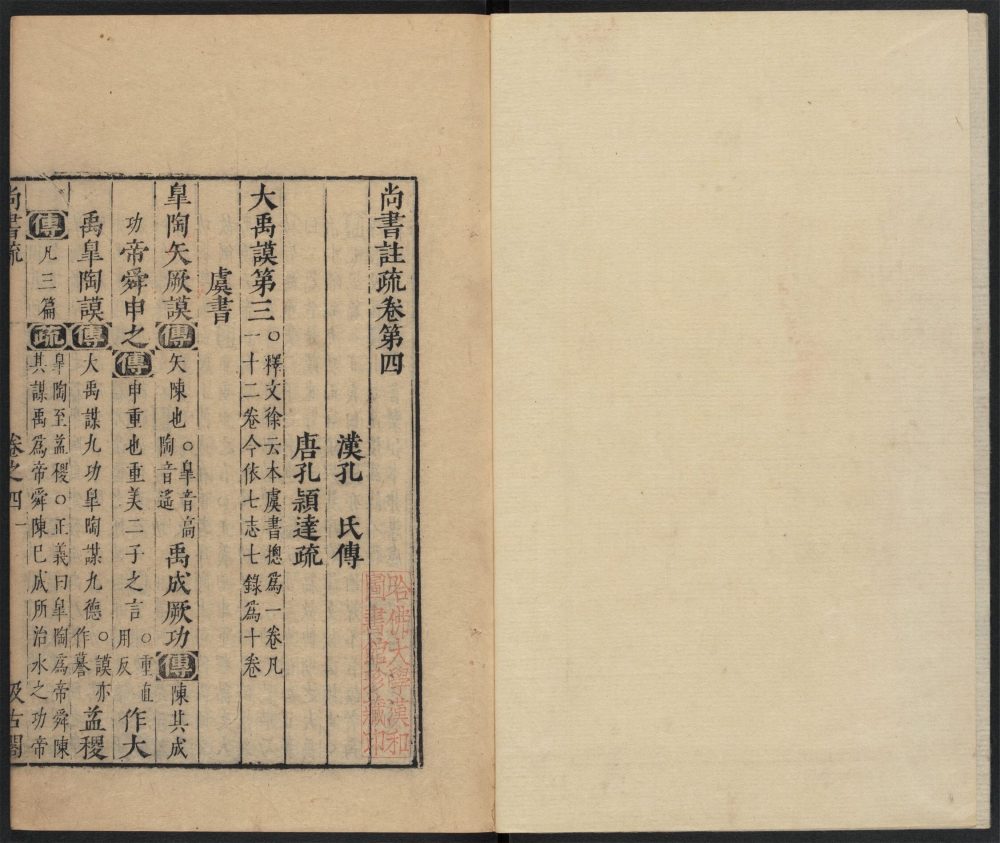 尚書註疏卷第四
漢孔　氏傳
唐孔穎達疏
哈佛大學漢和
圖書館珍藏印
大禹謨第三
○釋文徐云本虞書摠爲一卷凡
一十二卷今依七志七錄爲十卷
虞書
臯陶矢厥謨傳矢陳也○臯音高
陶音遙
禹成厥功傳陳其成
功帝舜申之傳申重也重美二子之言○重直
用反
作大
禹臯陶謨傳大禹謀九功臯陶謀九德○謨亦
作謩
益稷
傳凡三篇疏臯陶至益稷○正義曰臯陶爲帝舜陳
其謀禹爲帝舜陳已成所治水之功帝
尚書疏
卷之四
一
汲古閣